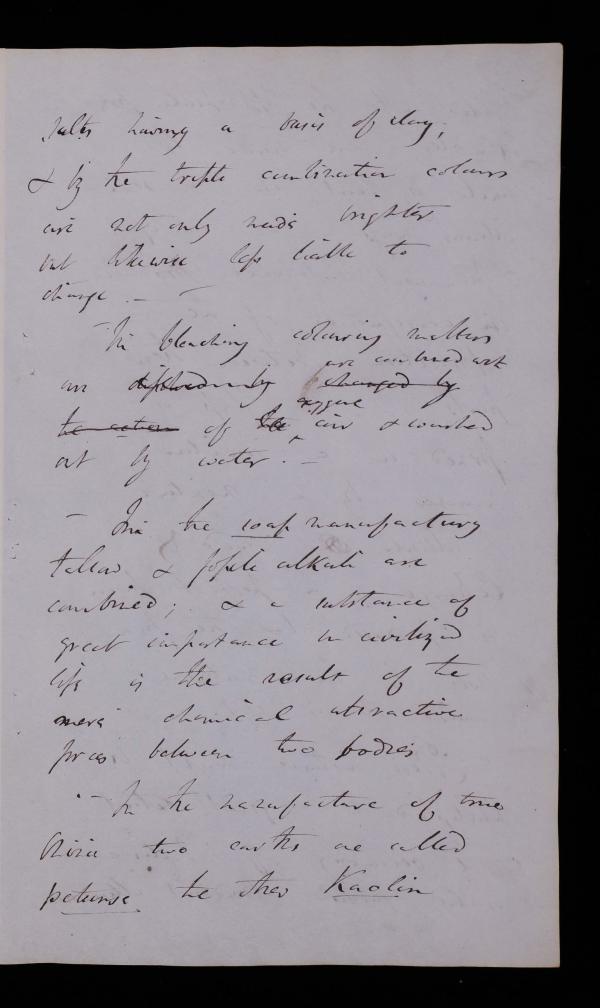 salts having a basis of clay;
& by the triple combination colours
are not only made brighter
but likewise less liable to
change. — —
In bleaching colouring matters
are combined with
are changed by
oxygene
the action of the air & washed
out by water. —
— In the soap manufactury
tallow & fossile alkali are
combined; & a substance of
great importance in civilized
life is the result of the
mere chemical attractive
forces between two bodies
— In the manufacture of true
China two earths one called
petunse the other Kaolin